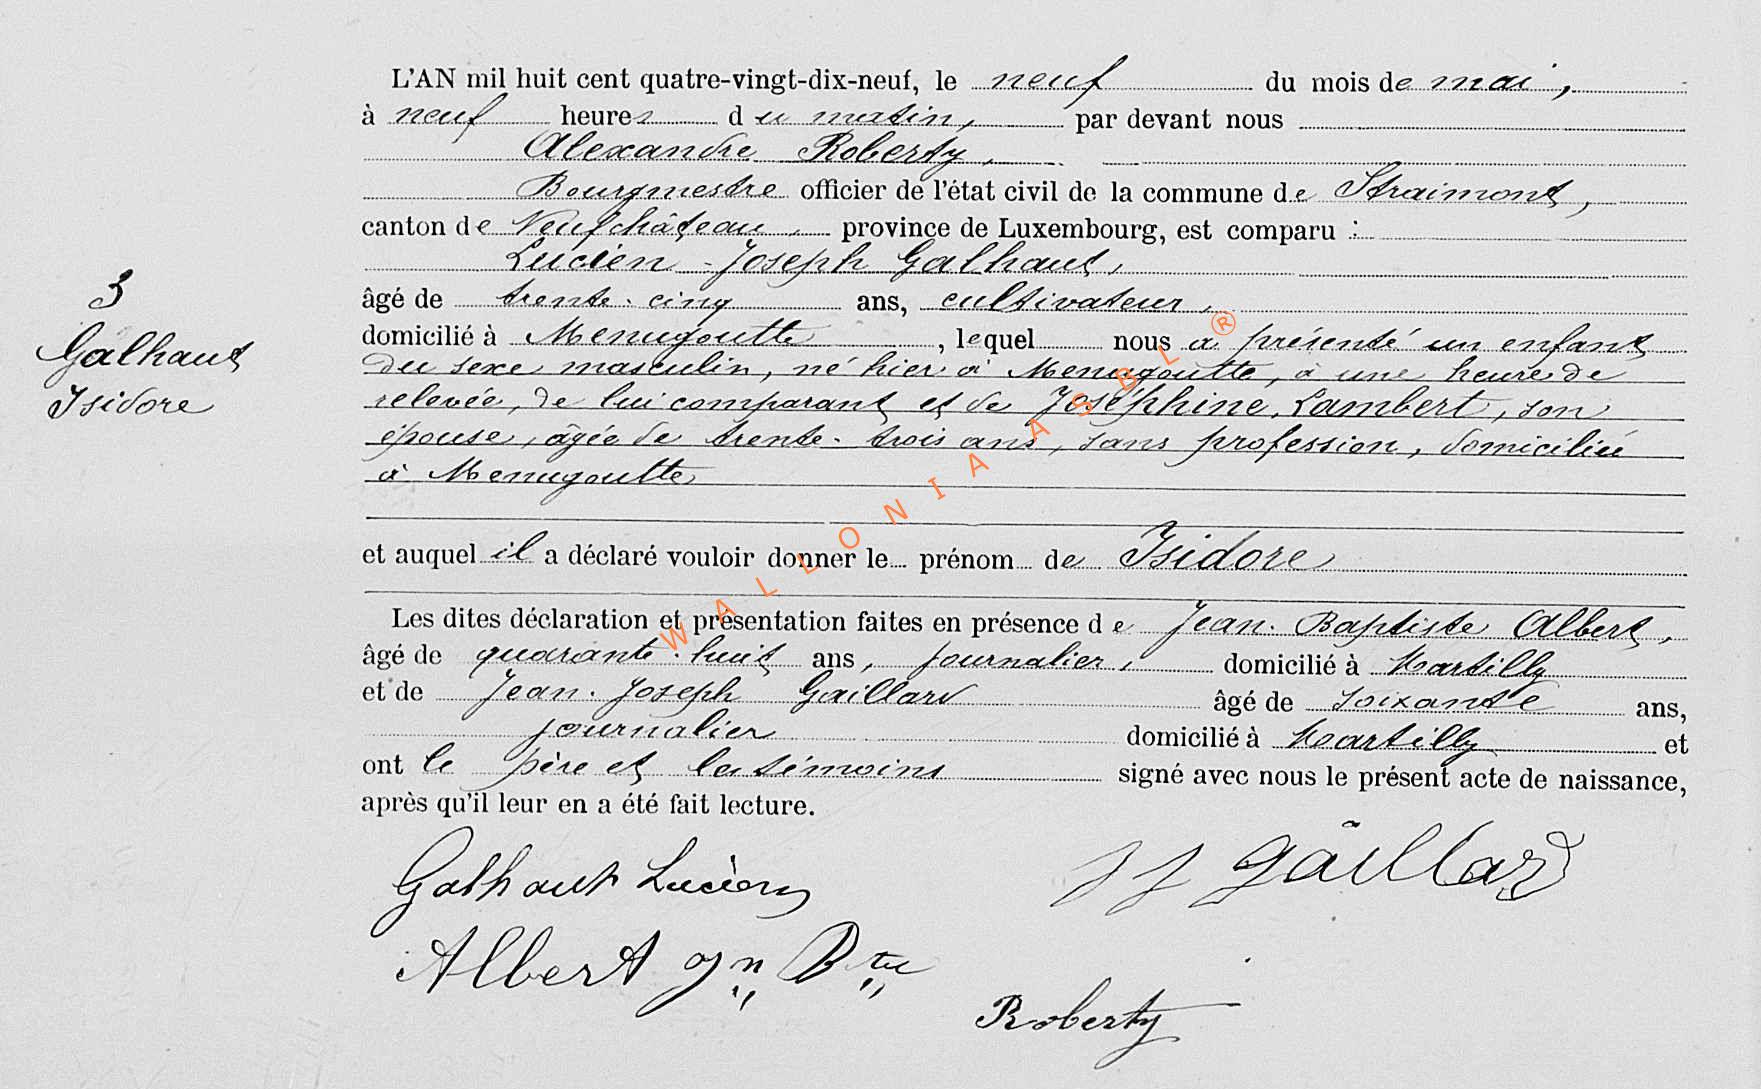 L'AN mil huit cent quatre-vingt-dix-neuf, le neuf du mois de mai,
à neuf heures du matin, par devant nous
Alexandre Roberty,
Bourgmestre officier de l'état civil de la commune de Straimont,
canton de Neufchâteau, province de Luxembourg, est comparu :
Lucien-Joseph Galhaut,
âgé de trente-cinq ans, cultivateur,
domicilié à Menugoutte, lequel nous a présenté un enfant
du sexe masculin, né hier à Menugoutte, à une heure de
relevée, de lui comparant et de Joséphine Lambert, son
épouse, âgée de trente-trois ans, sans profession, domiciliée
à Menugoutte
3
Galhaut
Isidore
et auquel il a déclaré vouloir donner le prénom de Isidore
Les dites déclaration et présentation faites en présence de Jean-Baptiste Albert,
âgé de quarante-huit ans, journalier, domicilié à Martilly
et de Jean-Joseph Gaillard âgé de soixante ans,
journalier domicilié à Martilly et
ont le père et les témoins signé avec nous le présent acte de naissance,
après qu'il leur en a été fait lecture.
Galhaut Lucien
JJ Gaillard
Albert Jn Bte
Roberty
WALLONIA ASBL ®